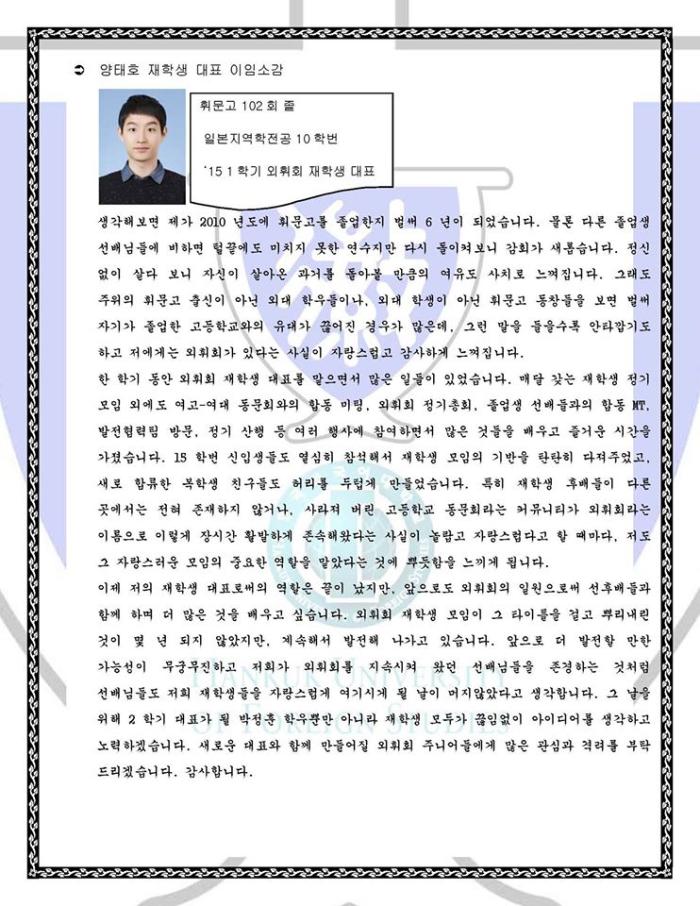 ➲ 양태호 재학생 대표 이임소감
휘문고 102 회 졸
일본지역학전공 10 학번
‘15 1 학기 외휘회 재학생 대표
생각해보면 제가 2010 년도에 휘문고를 졸업한지 벌써 6 년이 되었습니다. 물론 다른 졸업생
선배님들에 비하면 털끝에도 미치지 못한 연수지만 다시 돌이켜보니 감회가 새롭습니다. 정신
없이 살다 보니 자신이 살아온 과거를 돌아볼 만큼의 여유도 사치로 느껴집니다. 그래도
주위의 휘문고 출신이 아닌 외대 학우들이나, 외대 학생이 아닌 휘문고 동창들을 보면 벌써
자기가 졸업한 고등학교와의 유대가 끊어진 경우가 많은데, 그런 말을 들을수록 안타깝기도
하고 저에게는 외휘회가 있다는 사실이 자랑스럽고 감사하게 느껴집니다.
한 학기 동안 외휘회 재학생 대표를 맡으면서 많은 일들이 있었습니다. 매달 갖는 재학생 정기
모임 외에도 여고-여대 동문회와의 합동 미팅, 외휘회 정기총회, 졸업생 선배들과의 합동 MT,
발전협력팀 방문, 정기 산행 등 여러 행사에 참여하면서 많은 것들을 배우고 즐거운 시간을
가졌습니다. 15 학번 신입생들도 열심히 참석해서 재학생 모임의 기반을 탄탄히 다져주었고,
새로 합류한 복학생 친구들도 허리를 두텁게 만들었습니다. 특히 재학생 후배들이 다른
곳에서는 전혀 존재하지 않거나, 사라져 버린 고등학교 동문회라는 커뮤니티가 외휘회라는
이름으로 이렇게 장시간 활발하게 존속해왔다는 사실이 놀랍고 자랑스럽다고 할 때마다. 저도
그 자랑스러운 모임의 중요한 역할을 맡았다는 것에 뿌듯함을 느끼게 됩니다.
이제 저의 재학생 대표로써의 역할은 끝이 났지만, 앞으로도 외휘회의 일원으로써 선후배들과
함께 하며 더 많은 것을 배우고 싶습니다. 외휘회 재학생 모임이 그 타이틀을 걸고 뿌리내린
것이 몇 년 되지 않았지만, 계속해서 발전해 나가고 있습니다. 앞으로 더 발전할 만한
가능성이 무궁무진하고 저희가 외휘회를 지속시켜 왔던 선배님들을 존경하는 것처럼
선배님들도 저희 재학생들을 자랑스럽게 여기시게 될 날이 머지않았다고 생각합니다. 그 날을
위해 2 학기 대표가 될 박정훈 학우뿐만 아니라 재학생 모두가 끊임없이 아이디어를 생각하고
노력하겠습니다. 새로운 대표와 함께 만들어질 외휘회 주니어들에게 많은 관심과 격려를 부탁
드리겠습니다. 감사합니다.
HANKUK UNIVERSITY
OF FOREIGN STUDIES